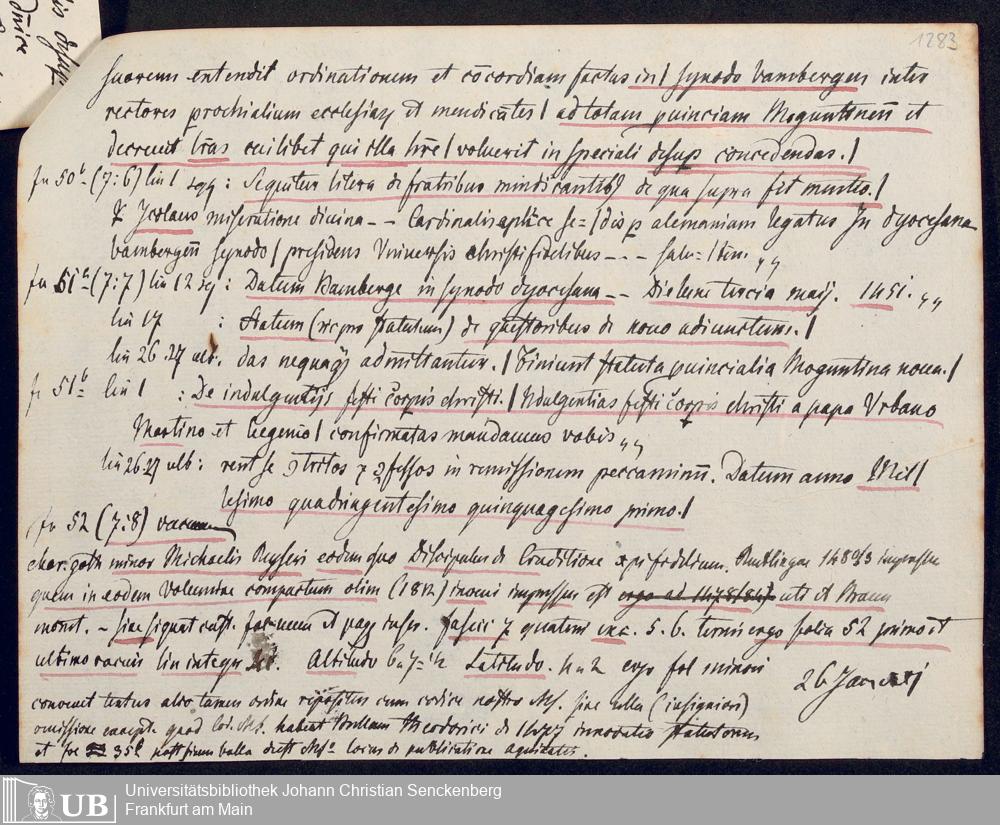 1283
suorum extendit ordinationem et cōcordiam factas in / Synodo bambergen inter
rectores prochialium ecclesiaꝝ et mendicātes / ad totam ꝓuinciam Moguntineñ et
decreuit lr̄as cuilibet qui illa hr̄e / voluerit in speciali desuꝑ concedendas. /
fo 50b (7:6) lin 1 sqq : Sequitur litera de fratribus mendicantibꝰ de qua supra fit mentio. /
Nicolaus miseratione diuina -- Cardinalis aplice se= / dis ꝑ alemaniam legatus In dyocesana
bambergeñ synodo / presidens Vniuersis christifidelibus --- salu= / tem „
fo 51a (7:7) lin 12 sq : Datum Bamberge in synodo dyocesana -- Die lune tercia maij. 1451. „
lin 17 : Statum (sic pro statutum) de questoribus de nouo adiunctum. /
lin 26.27 ult. das nequaqꝫ admittantur. / Finiunt statuta ꝓuincialia Moguntina noua. /
fo 51b lin 1 : De indulgentijs festi corpis christi. / Indulgentias festi corpis christi a papa Vrbano
Martino et Eugenio / confirmatas mandamus vobis „
lin 26.27 ult : rent se ꝯtritos ꝛ ꝯfessos in remissionem peccaminū. Datum anno Mil /
lesimo quadringentesimo quinquagesimo primo. /
fo 52 (7:8) vacuum
char. goth minor Michaelis Reyseri eodem quo Discipulus de Eruditione xpi fidelium. Reutlingae 148 impressus
quem in eodem Volumine compactum olim (1812) inueni impressus est ergo ad 1478/84 uti et Braun
monet. - sine signat cust. fol num et pag inscr. fascic 7 quaterni exc. 5. 6. ternis ergo folia 52 primo et
ultimo vacuis lin integr Altitudo 6 Latitudo. 4 2 ergo fol minori
26 Januarj
conuenit textus alio tamen ordine repositus cum codice nostro Ms. sine bulla (insigniori)
omissione except. quod Cod. Ms. habeat Bullam Theodorici de innovatio statutorum
et fol 35 post finem bulla deest Ms locus de publicatione
Universitätsbibliothek Johann Christian Senckenberg
Frankfurt am Main
UB